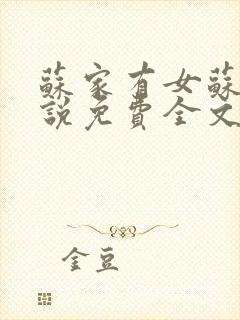 蘇家有女蘇
說免費全文
金豆